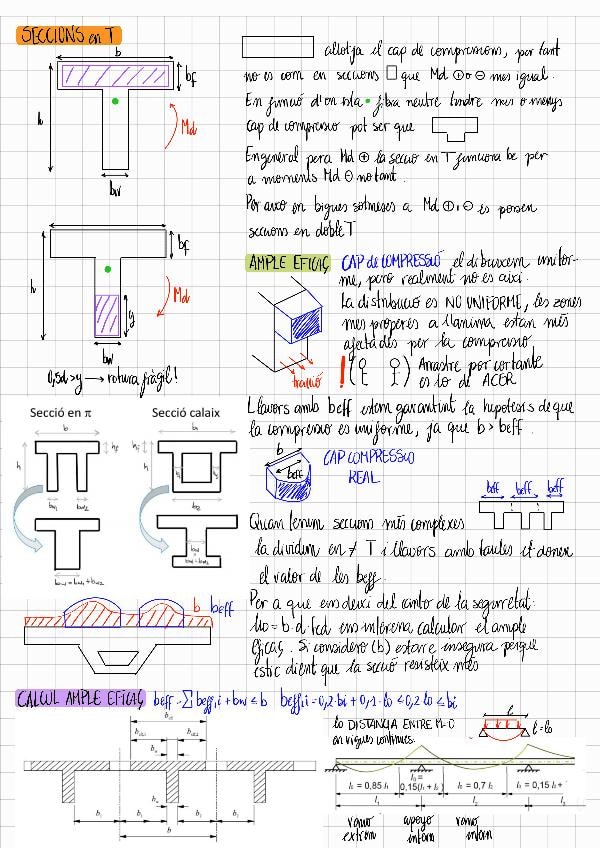 SECCIONS en T
b
bf
h
Md
bw
allotja el cap de compressions, per tant
no es com en seccions que Md ⊕ o ⊖ mes igual.
En funció d'on sta fibra neutre tindre mes o menys
cap de compressio pot ser que
En general per a Md ⊕ la secció en T funciona be per
a moments Md ⊖ no tant.
Per aixo en bigues sotmeses a Md ⊕ i ⊖ es posen
seccions en doble T
bf
h
Md
y
bw
0,5d > y → rotura fràgil!
AMPLE EFICAÇ CAP de COMPRESSIÓ el dibuixem unifor-
me, pero realment no es aixi.
La distribucio es NO UNIFORME, les zones
mes properes a l'anima estan més
afectades per la compressio,
tracció
! Arrastre por cortante
es lo de ACER
Llavors amb beff estem garantint la hipotesis de que
la compressio es uniforme, ja que b > beff.
Secció en π
Secció calaix
b
hf
h
bw1
bw2
bw = bw1 + bw2
b
beff
CAP COMPRESSIO
REAL
beff beff beff
Quan tenim seccions més complexes
la dividim en ≠ T i llavors amb taules et donen
el valor de les beff.
b beff
Per a que ens deixi del canto de la seguretat:
U0 = b·d·fcd ens interessa calcular el ample
eficaç. Si considero (b) estare en insegura perque
estic dient que la secció resisteix més
CALCUL AMPLE EFICAÇ beff = ∑ beff,i + bw ≤ b beff,i = 0,2·bi + 0,1·l0 ≤ 0,2 l0 ≤ bi
l0 DISTANCIA ENTRE M=0
en vigues continues.
l
l = l0
bef
bef1
bef2
bw
bw
b1
b1
b2
b2
b
l0 = 0,85 l1
l0 =
0,15(l1 + l2)
l0 = 0,7 l2
l0 = 0,15 l2 +
l1
l2
l3
vano
extrem
apoyo
intern
vano
intern